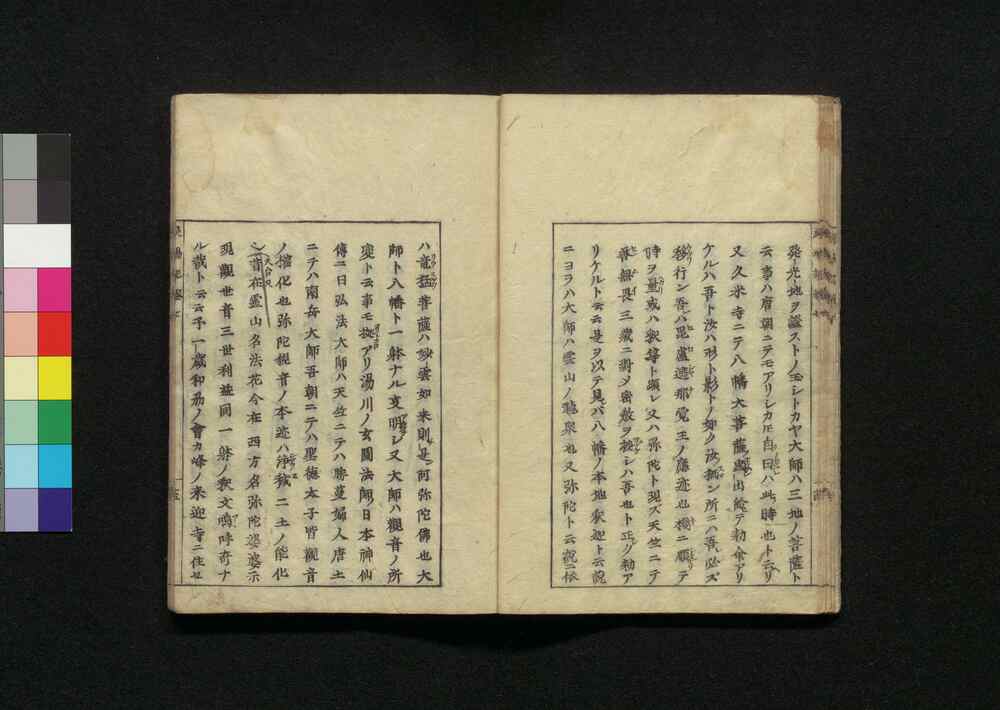 発光地ヲ證ストノ玉シトカヤ大師ハ三地ノ菩薩ト
云事ハ唐朝ニテモアリシカ自曰ハ此時也ト云リ
又久米寺ニテ八幡大菩薩出給テ勅命アリ
ケルハ吾ト汝ハ形ト影トノ如ク汝カ所ニハ吾必ズ
移行ン吾ハ毘盧遮那覚王ノ應迹也機ニ順テ
時ヲ量或ハ釈尊ト顕レ又ハ弥陀ト現ズ天竺ニテ
善無畏三蔵ニ對メ密教ヲ授シハ吾也ト正ク勅ア
リケルト云云是ヲ以テ見バ八幡ノ本地釈迦ト云説
ニヨラハ大師ハ霊山ノ聴衆也又弥陀ト云説ニ依
ハ竜猛菩薩ハ妙雲如来則是阿弥陀佛也大
師ト八幡ト一躰ナル支明シ又大師ハ觀音ノ所
変ト云事モアリ湯川ノ玄圓法師ノ日本神仙
傳ニ曰弘法大師ハ天竺ニテハ勝鬘婦人唐土
ニテハ南岳大師吾朝ニテハ聖徳太子皆觀音
ノ権化也弥陀観音ノ本迹ハ浄穢二土ノ能化
昔在霊山名法花今在西方名弥陀娑婆示
現觀世音三世利益同一躰ノ釈文嗚呼奇ナ
ル哉ト云云予一歳和刕ノ會カ峰ノ来迎寺ニ住セ